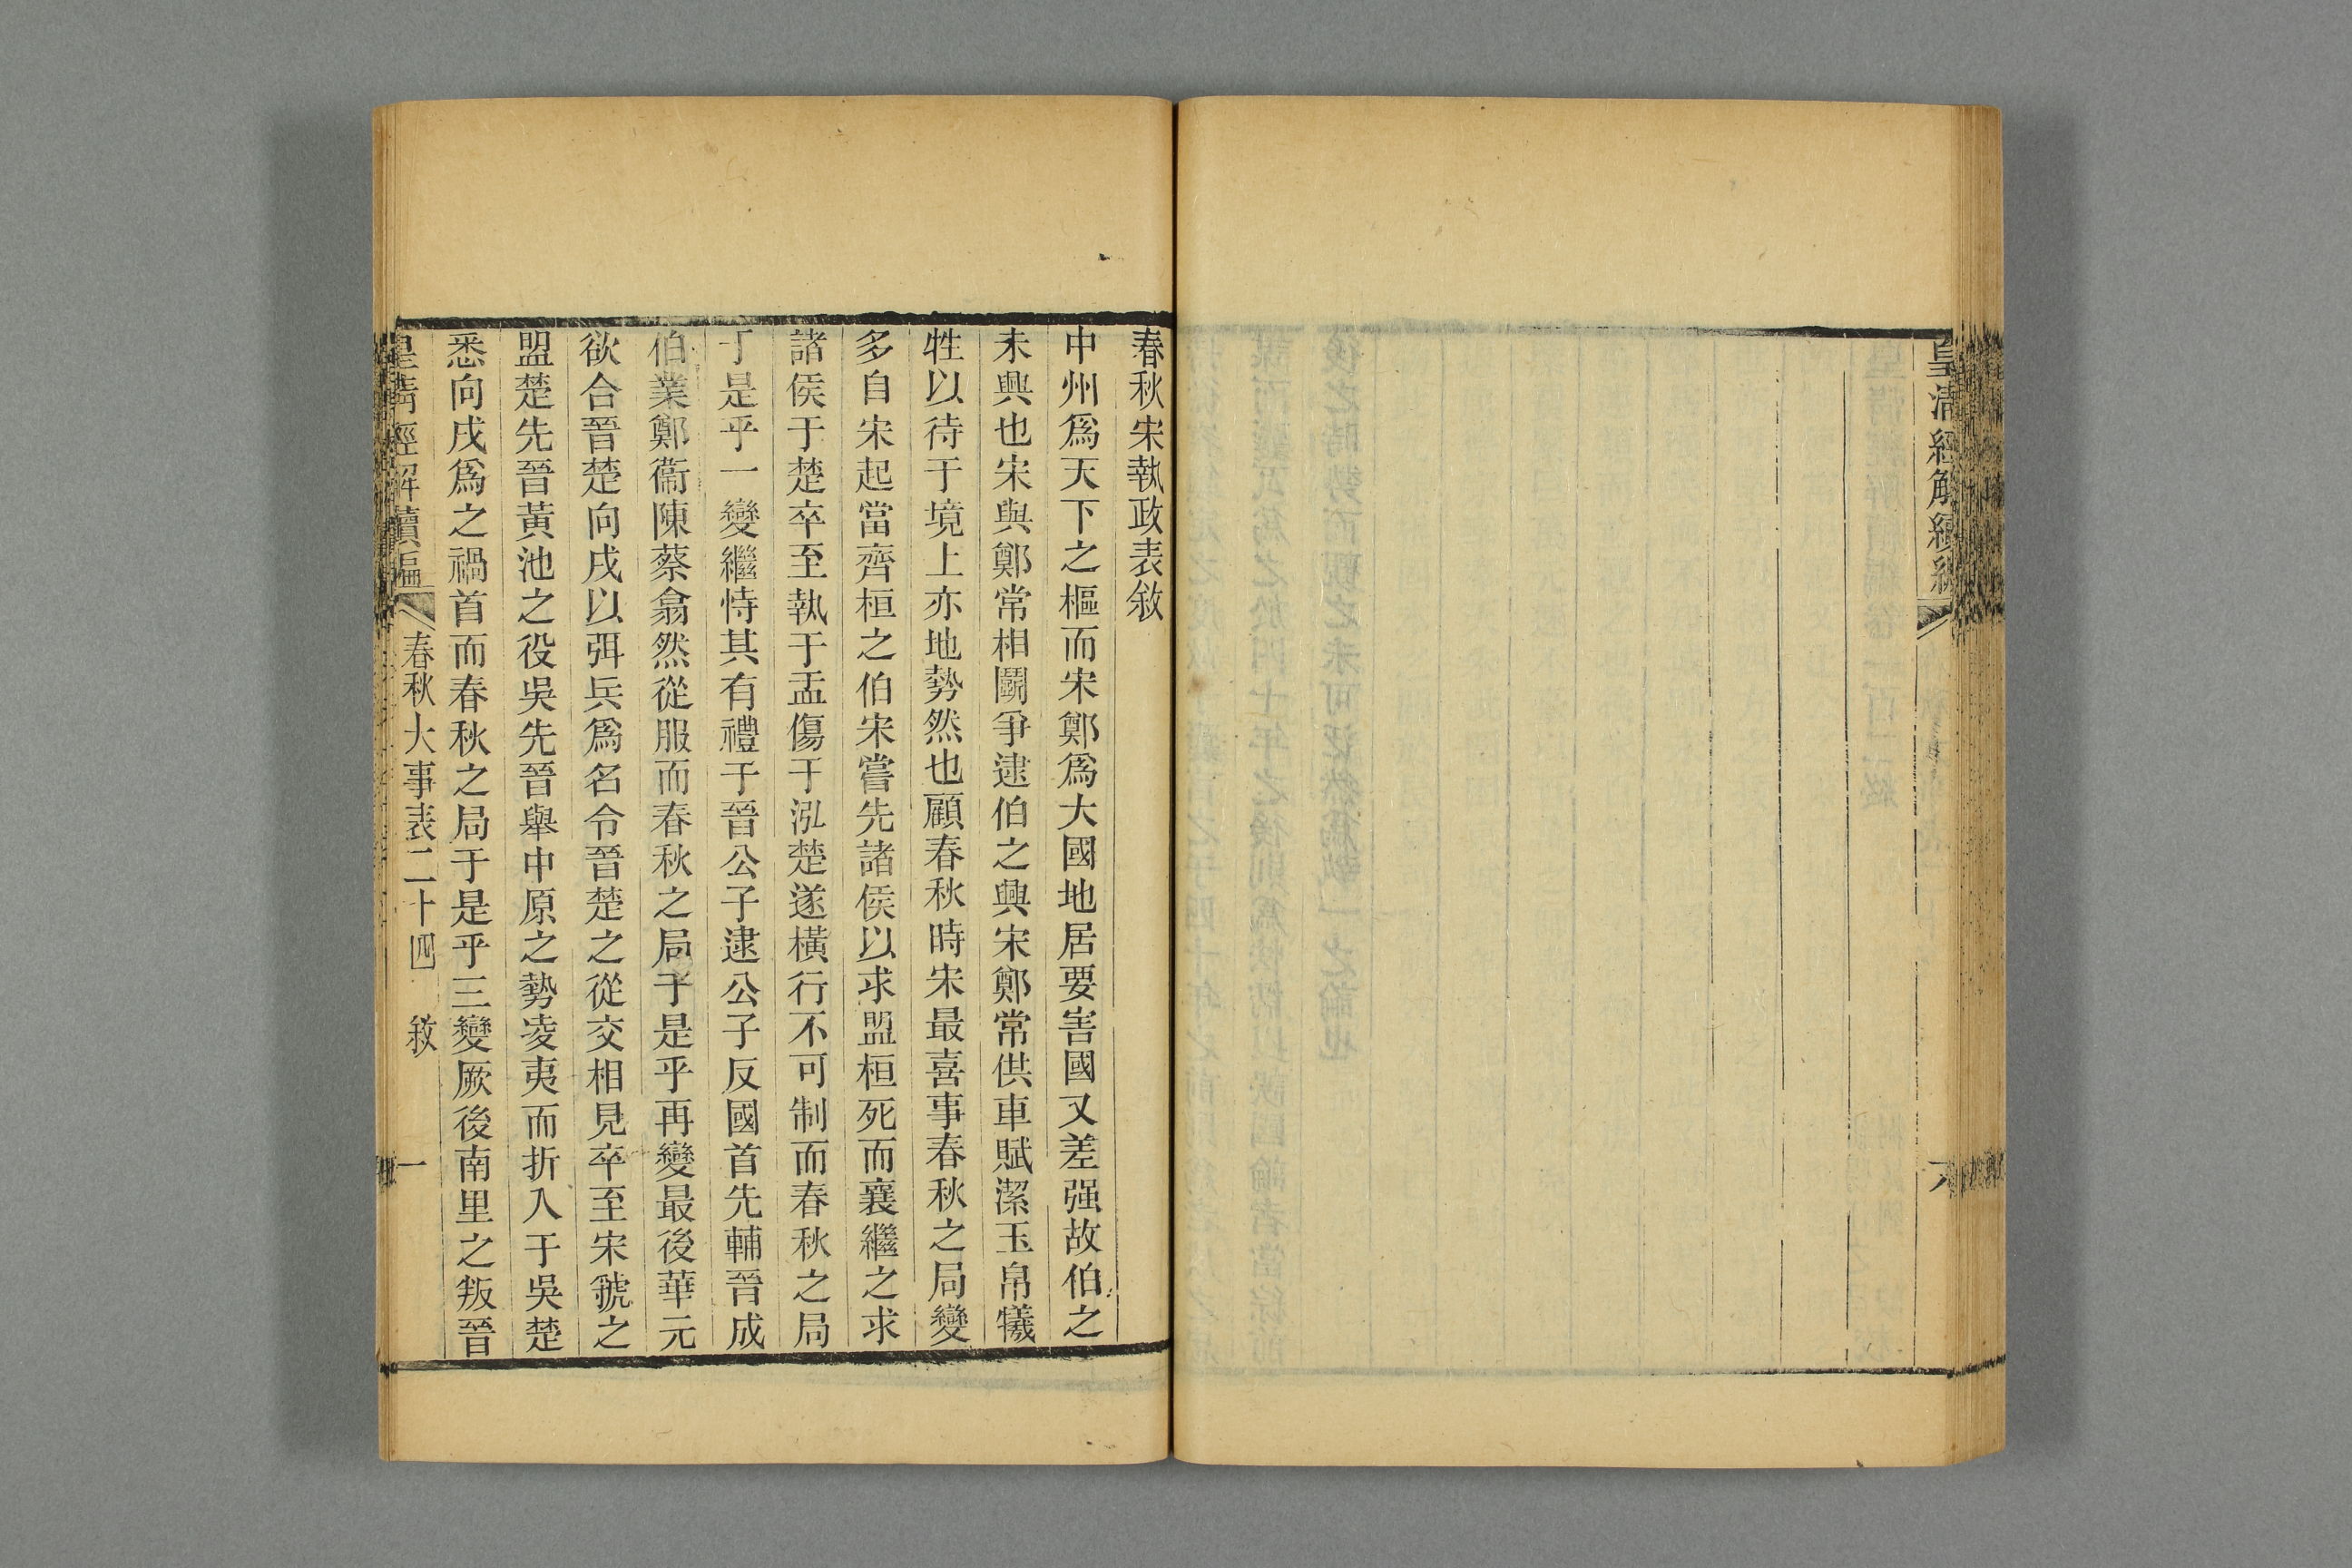 皇清經解續編
春秋宋執政表敘
中州爲天下之樞而宋鄭爲大國地居要害國又差强故伯之
未興也宋與鄭常相鬭爭逮伯之興宋鄭常供車賦潔玉帛犧
牲以待于境上亦地勢然也顧春秋時宋最喜事春秋之局變
多自宋起當齊桓之伯宋嘗先諸侯以求盟桓死而襄繼之求
諸侯于楚卒至執于盂傷于泓楚遂橫行不可制而春秋之局
于是乎一變繼恃其有禮于晉公子逮公子反國首先輔晉成
伯業鄭衞陳蔡翕然從服而春秋之局于是乎再變最後華元
欲合晉楚向戌以弭兵爲名令晉楚之從交相見卒至宋虢之
盟楚先晉黃池之役吳先晉舉中原之勢凌夷而折入于吳楚
悉向戌爲之禍首而春秋之局于是乎三變厥後南里之叛晉
皇清經解續編
春秋大事表二十四 敘
一